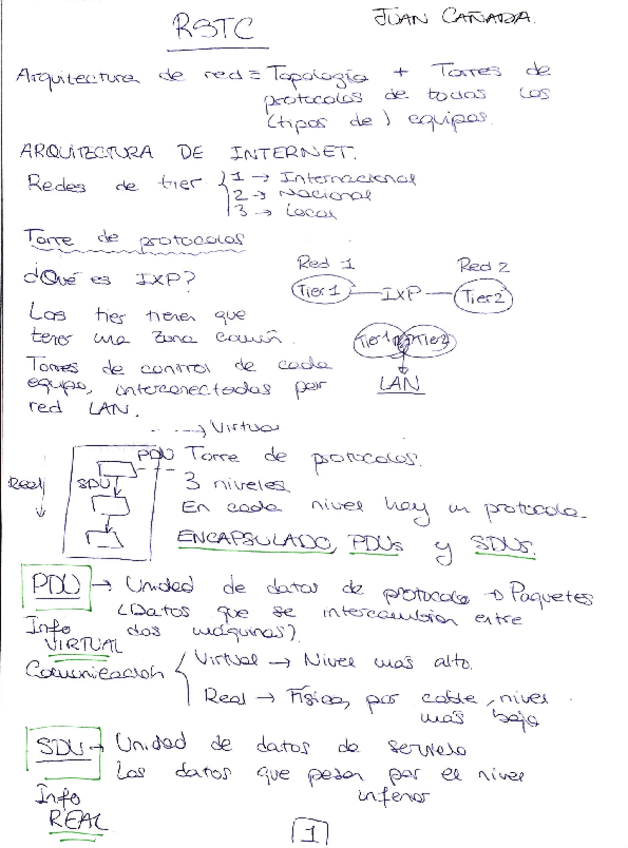 JUAN CAÑADA.
RSTC
Arquitectura de red = Topología + Torres de
protocolos de todos los
(tipos de) equipos.
ARQUITECTURA DE INTERNET.
Redes de tier
1 → Internacional
2 → Nacional
3 → Local
Torre de protocolos
Red 1 Red 2
¿Qué es IXP?
Tier 1 — IXP — Tier 2
Los tier tienen que
tener una zona común.
Tier 1 Tier 2
Torres de control de cada
equipo, interconectadas por
LAN
red LAN.
----→ Virtual
PDU Torre de protocolos.
Real SDU 3 niveles.
En cada nivel hay un protocolo.
ENCAPSULADO, PDUs y SDUs.
PDU → Unidad de datos de protocolo → Paquetes
(Datos que se intercambian entre
Info dos máquinas).
VIRTUAL
Comunicación
Virtual → Nivel más alto.
Real → Física, por cable, nivel
más bajo
SDU → Unidad de datos de servicio
Los datos que pasan por el nivel
Info inferior
REAL
1